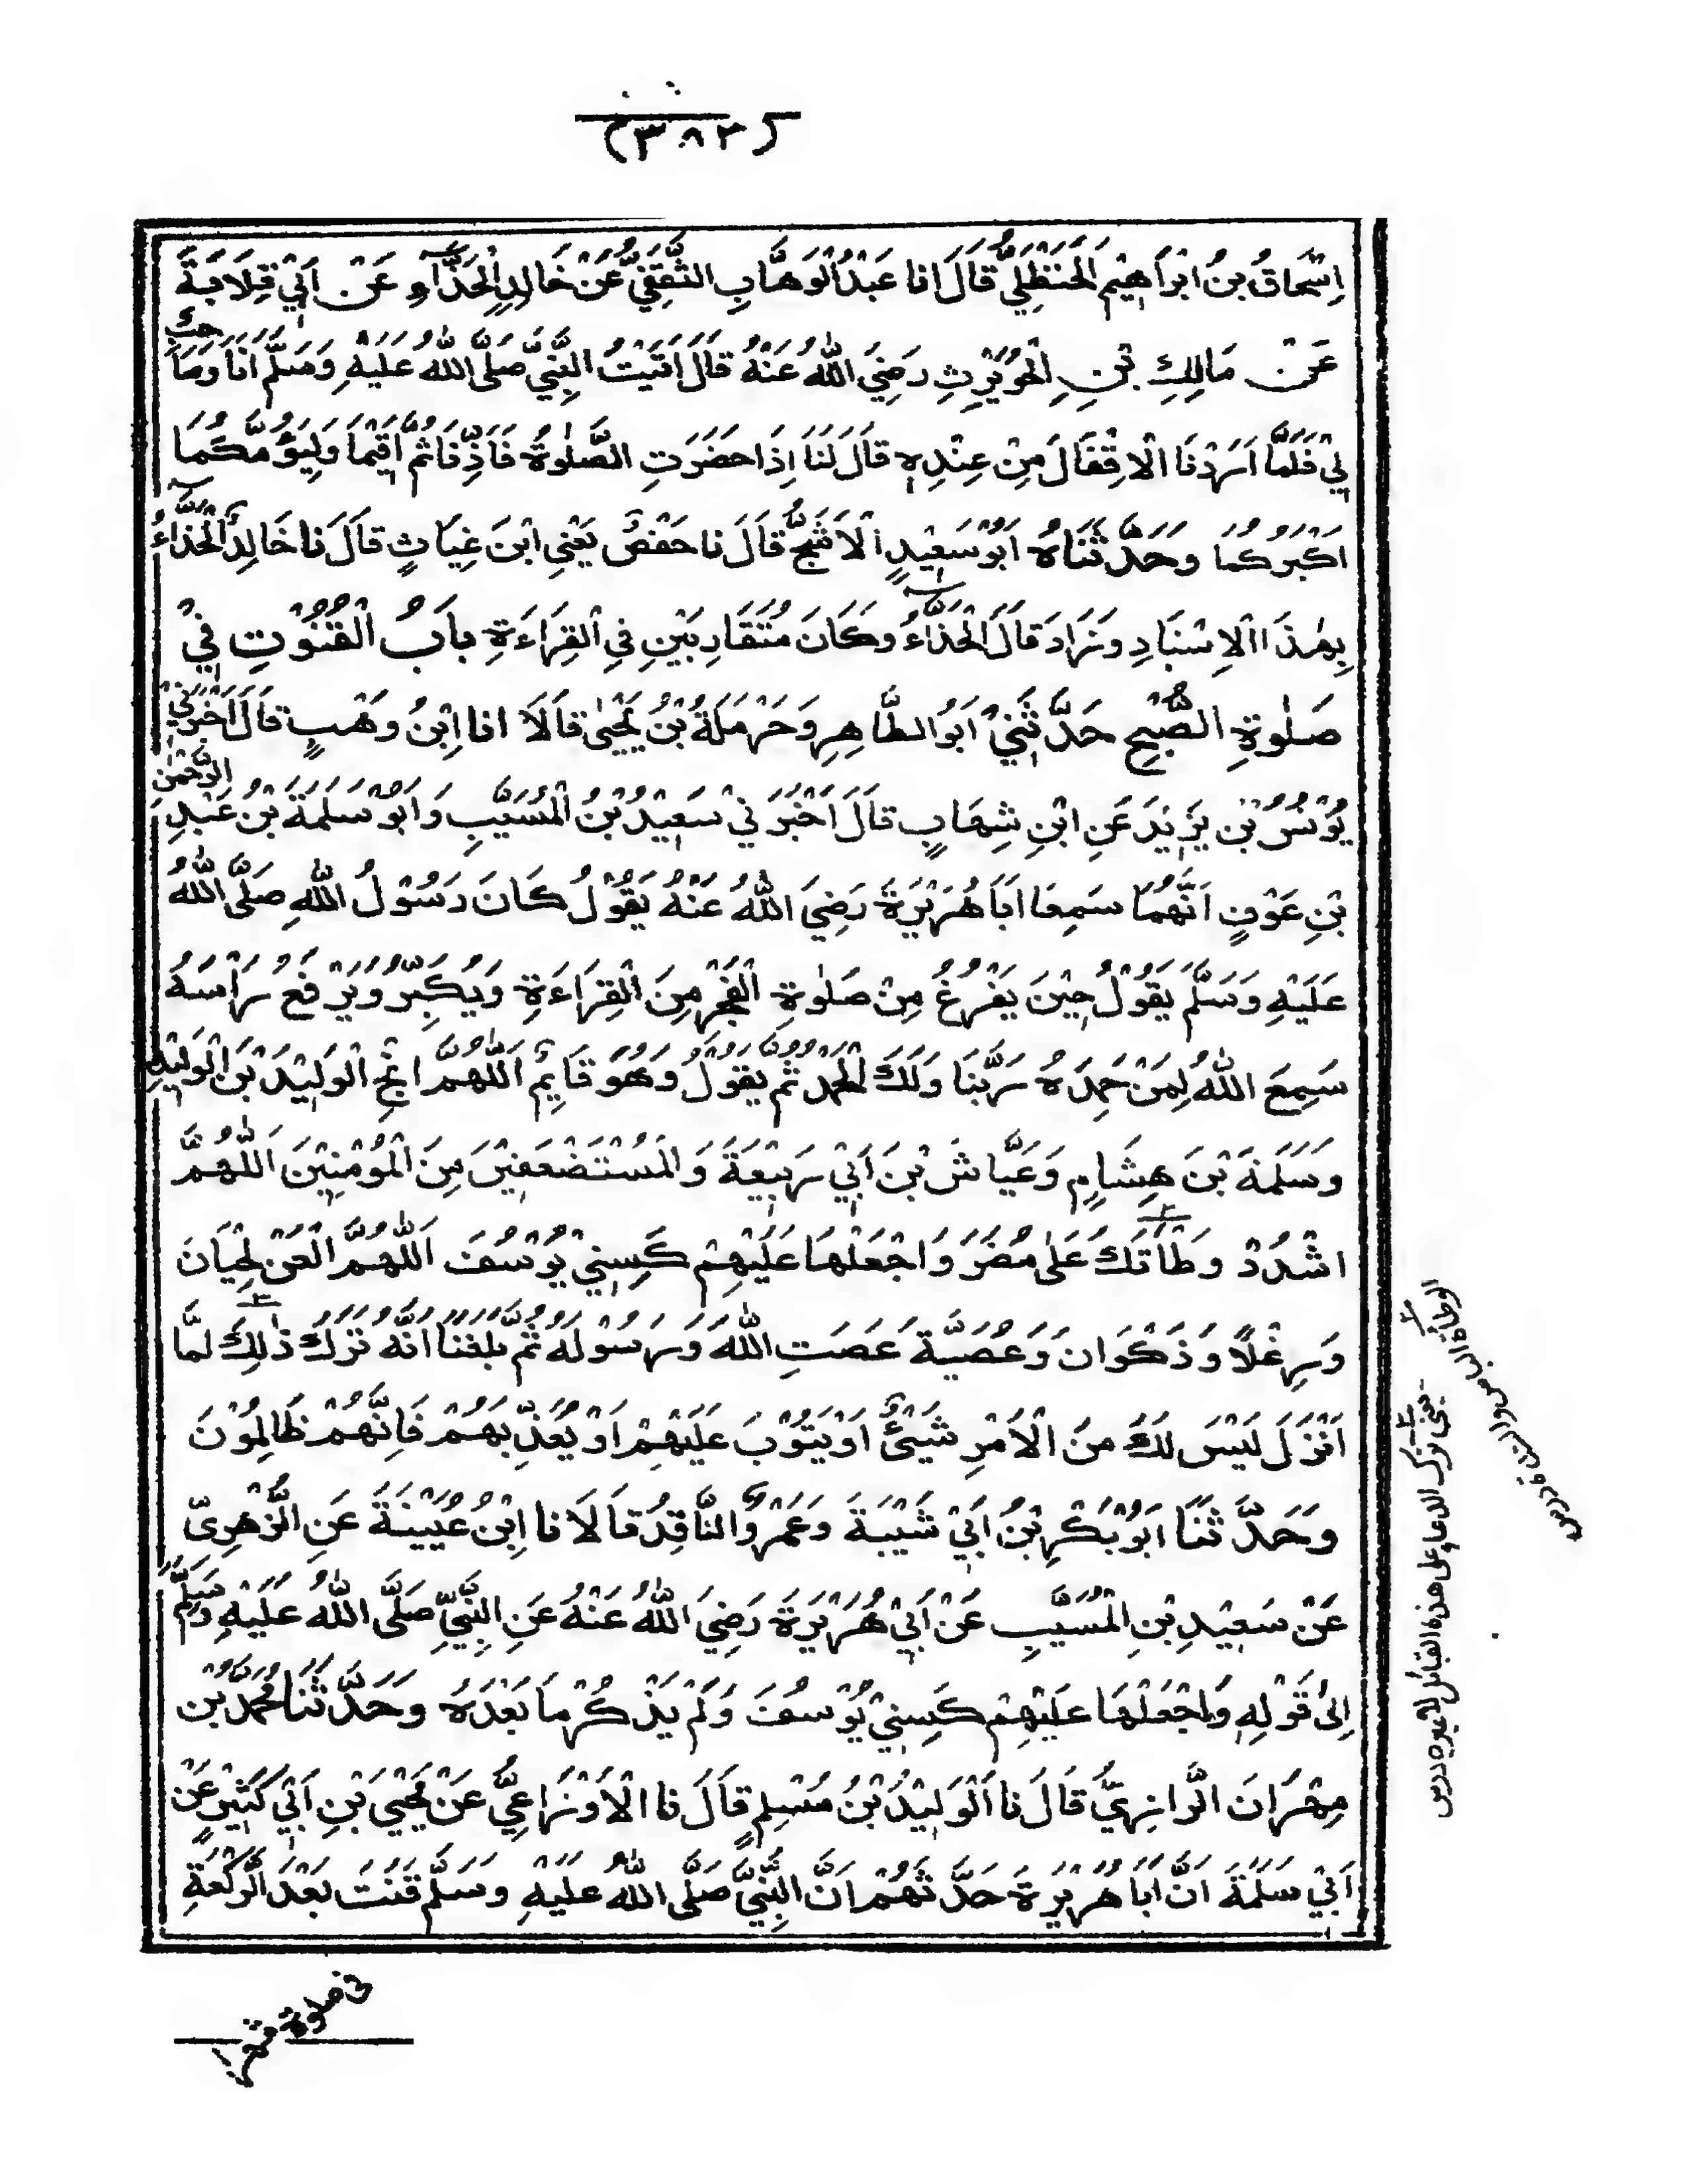 (٣٨٢)
اِسْحَاقُ بْنُ اِبْرَاهِيْمَ الْحَنْظَلِيُّ قَالَ انا عَبْدُ الْوَهَّابِ الثَّقَفِيُّ عَنْ خَالِدِ الْحَذَّاءِ عَنْ اَبِيْ قِلَابَةَ
عَنْ مَالِكِ بْنِ الْحُوَيْرِثِ رَضِيَ اللّٰهُ عَنْهُ قَالَ اَتَيْتُ النَّبِيَّ صَلَّى اللّٰهُ عَلَيْهِ وَسَلَّمَ اَنَا وَصَاحِبٌ
لِيْ فَلَمَّا اَرَدْنَا الْاِقْفَالَ مِنْ عِنْدِهٖ قَالَ لَنَا اِذَا حَضَرَتِ الصَّلٰوةُ فَاَذِّنَا ثُمَّ اَقِيْمَا وَلْيَؤُمَّكُمَا
اَكْبَرُكُمَا وَحَدَّثَنَاهُ اَبُوْ سَعِيْدٍ الْاَشَجُّ قَالَ نا حَفْصٌ يَعْنِى ابْنَ غِيَاثٍ قَالَ نا خَالِدُ الْحَذَّاءُ
بِهٰذَا الْاِسْنَادِ وَزَادَ قَالَ الْحَذَّاءُ وَكَانَ مُتَقَارِبَيْنِ فِي الْقِرَاءَةِ بَابُ الْقُنُوْتِ فِيْ
صَلٰوةِ الصُّبْحِ حَدَّثَنِيْ اَبُو الطَّاهِرِ وَحَرْمَلَةُ بْنُ يَحْيٰى قَالَا انا اِبْنُ وَهْبٍ قَالَ اَخْبَرَنِيْ
يُوْنُسُ بْنُ يَزِيْدَ عَنِ ابْنِ شِهَابٍ قَالَ اَخْبَرَنِيْ سَعِيْدُ بْنُ الْمُسَيَّبِ وَاَبُوْ سَلَمَةَ بْنُ عَبْدِ الرَّحْمٰنِ
بْنِ عَوْفٍ اَنَّهُمَا سَمِعَا اَبَا هُرَيْرَةَ رَضِيَ اللّٰهُ عَنْهُ يَقُوْلُ كَانَ رَسُوْلُ اللّٰهِ صَلَّى اللّٰهُ
عَلَيْهِ وَسَلَّمَ يَقُوْلُ حِيْنَ يَفْرُغُ مِنْ صَلٰوةِ الْفَجْرِ مِنَ الْقِرَاءَةِ وَيُكَبِّرُ وَيَرْفَعُ رَأْسَهُ
سَمِعَ اللّٰهُ لِمَنْ حَمِدَهُ رَبَّنَا وَلَكَ الْحَمْدُ ثُمَّ يَقُوْلُ وَهُوَ قَائِمٌ اَللّٰهُمَّ انْجِ الْوَلِيْدَ بْنَ الْوَلِيْدِ
وَسَلَمَةَ بْنَ هِشَامٍ وَعَيَّاشَ بْنَ اَبِيْ رَبِيْعَةَ وَالْمُسْتَضْعَفِيْنَ مِنَ الْمُؤْمِنِيْنَ اَللّٰهُمَّ
اشْدُدْ وَطْأَتَكَ عَلٰى مُضَرَ وَاجْعَلْهَا عَلَيْهِمْ كَسِنِيْ يُوْسُفَ اَللّٰهُمَّ الْعَنْ لِحْيَانَ
وَرِعْلًا وَذَكْوَانَ وَعُصَيَّةَ عَصَتِ اللّٰهَ وَرَسُوْلَهُ ثُمَّ بَلَغَنَا اَنَّهُ تَرَكَ ذٰلِكَ لَمَّا
اَنْزَلَ لَيْسَ لَكَ مِنَ الْاَمْرِ شَيْئٌ اَوْ يَتُوْبَ عَلَيْهِمْ اَوْ يُعَذِّبَهُمْ فَاِنَّهُمْ ظَالِمُوْنَ
وَحَدَّثَنَا اَبُوْ بَكْرِ بْنُ اَبِيْ شَيْبَةَ وَعَمْرٌو النَّاقِدُ قَالَا نا اِبْنُ عُيَيْنَةَ عَنِ الزُّهْرِيِّ
عَنْ سَعِيْدِ بْنِ الْمُسَيَّبِ عَنْ اَبِيْ هُرَيْرَةَ رَضِيَ اللّٰهُ عَنْهُ عَنِ النَّبِيِّ صَلَّى اللّٰهُ عَلَيْهِ وَسَلَّمَ
اِلٰى قَوْلِهٖ وَاجْعَلْهَا عَلَيْهِمْ كَسِنِيْ يُوْسُفَ وَلَمْ يَذْكُرْ مَا بَعْدَهُ وَحَدَّثَنَا مُحَمَّدُ بْنُ
مِهْرَانَ الرَّازِيُّ قَالَ نا الْوَلِيْدُ بْنُ مُسْلِمٍ قَالَ نا الْاَوْزَاعِيُّ عَنْ يَحْيَى بْنِ اَبِيْ كَثِيْرٍ عَنْ
اَبِيْ سَلَمَةَ اَنَّ اَبَا هُرَيْرَةَ حَدَّثَهُمْ اَنَّ النَّبِيَّ صَلَّى اللّٰهُ عَلَيْهِ وَسَلَّمَ قَنَتَ بَعْدَ الرَّكْعَةِ
٢ـ الوطاة الباس والشدة درس
٣ـ يعني ترك الدعاء على هذه القبائل لا غيره درس
فى صلوة شهرا